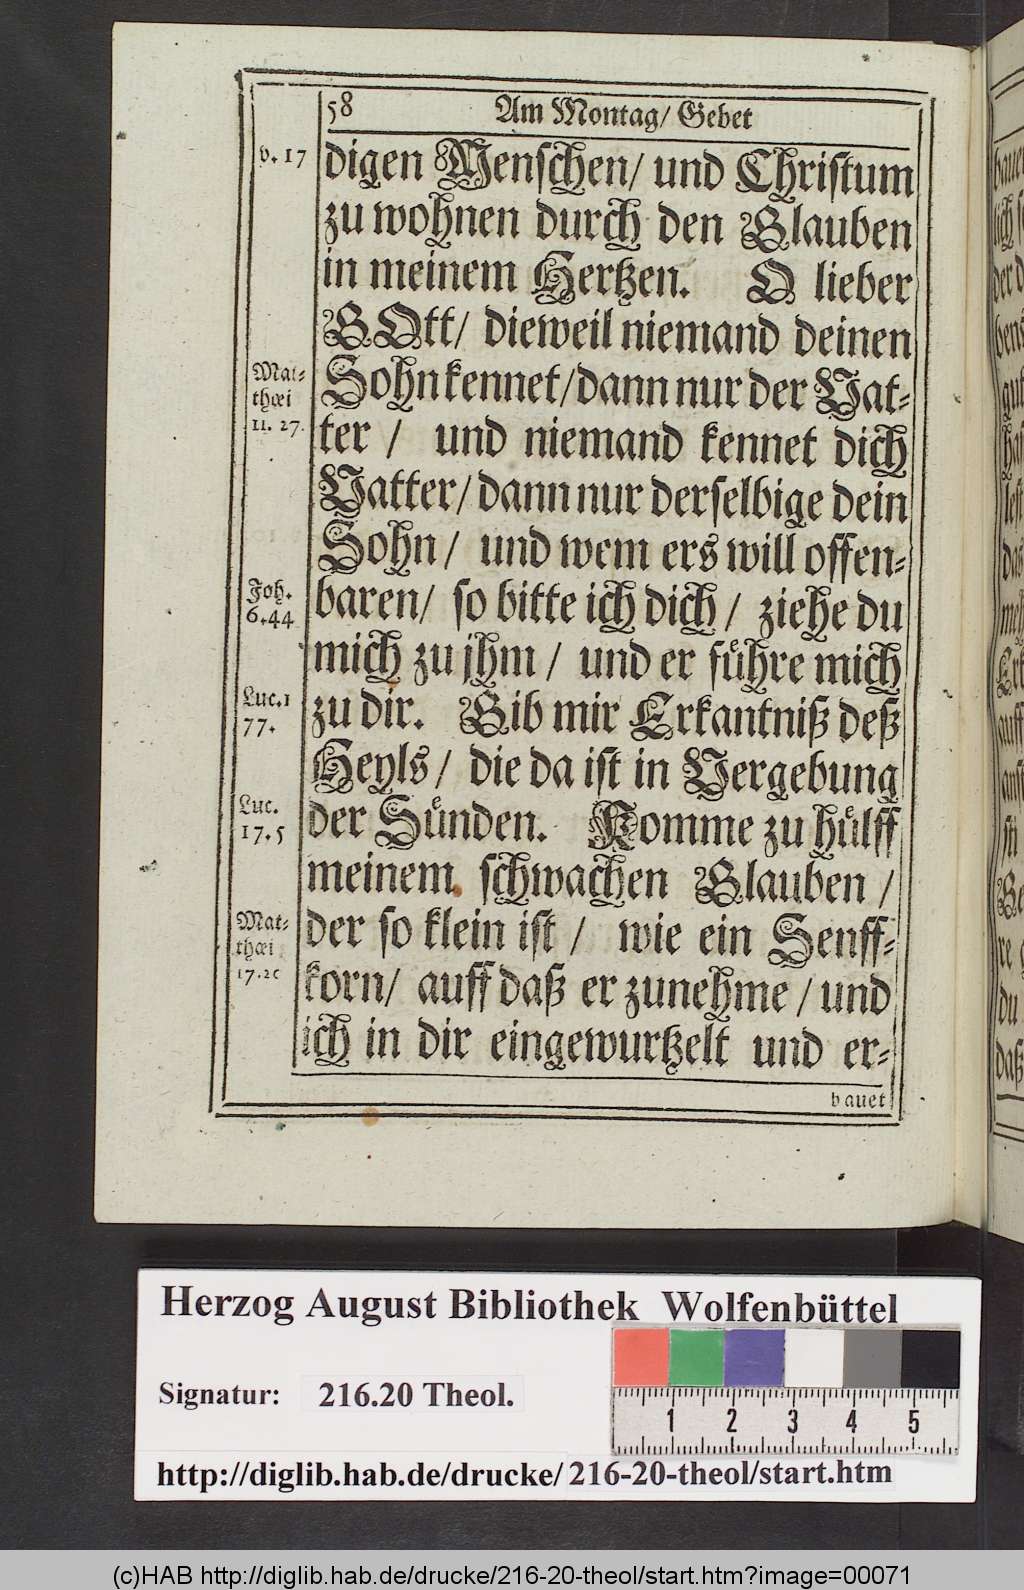 58 Am Montag/ Gebet
v. 17
digen Menschen/ und Christum
zu wohnen durch den Glauben
in meinem Hertzen. O lieber
GOtt/ dieweil niemand deinen
Mat-
thæi
11. 27.
Sohn kennet/dann nur der Vat-
ter / und niemand kennet dich
Vatter/ dann nur derselbige dein
Sohn / und wem ers will offen-
Joh.
6.44
baren/ so bitte ich dich / ziehe du
mich zu jhm / und er führe mich
Luc.1
77.
zu dir. Gib mir Erkantniß deß
Heyls / die da ist in Vergebung
Luc.
17.5
der Sünden. Komme zu hülff
meinem schwachen Glauben /
Mat-
thæi
17.20
der so klein ist / wie ein Senff-
korn/ auff daß er zunehme / und
ich in dir eingewurtzelt und er-
bauet
Herzog August Bibliothek Wolfenbüttel
Signatur: 216.20 Theol.
1 2 3 4 5
http://diglib.hab.de/drucke/216-20-theol/start.htm
(c)HAB http://diglib.hab.de/drucke/216-20-theol/start.htm?image=00071